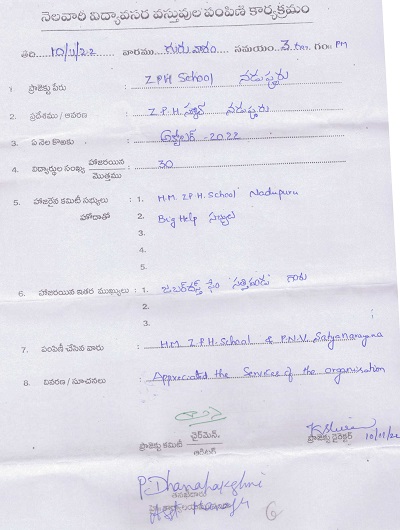 నెలవారి విద్యావసర వస్తువుల పంపిణి కార్యక్రమం
తేది: 10/11/22 వారము గురువారం సమయం: 3. గం॥ PM
1 ప్రాజెక్టు పేరు : ZPH School నడుపూరు
2. ప్రదేశము / ఆవరణ : Z.P.H. స్కూల్ నడుపూరు
3. ఏ నెల కొఱకు : అక్టోబర్ - 2022
4. విద్యార్థుల సంఖ్య హాజరయిన / మొత్తము : 30
5. హాజరైన కమిటీ సభ్యులు : 1. H.M. Z.P.H. School Nadupuru
హోదాతో 2. Big Help సభ్యులు
3.
4.
5.
6. హాజరయిన ఇతర ముఖ్యులు : 1. జబర్దస్త్ ఫేం సత్తిపండు గారు
2.
3.
7. పంపిణీ చేసిన వారు : H.M. Z.P.H. School & P.N.V. Satyanarayana
8. వివరణ / సూచనలు : Appreciated the Services of the organisation
ప్రాజెక్టు కమిటీ ఛైర్మెన్,
ప్రాజెక్టు డైరెక్టర్ 10/11/22
P. Dhanalakshmi